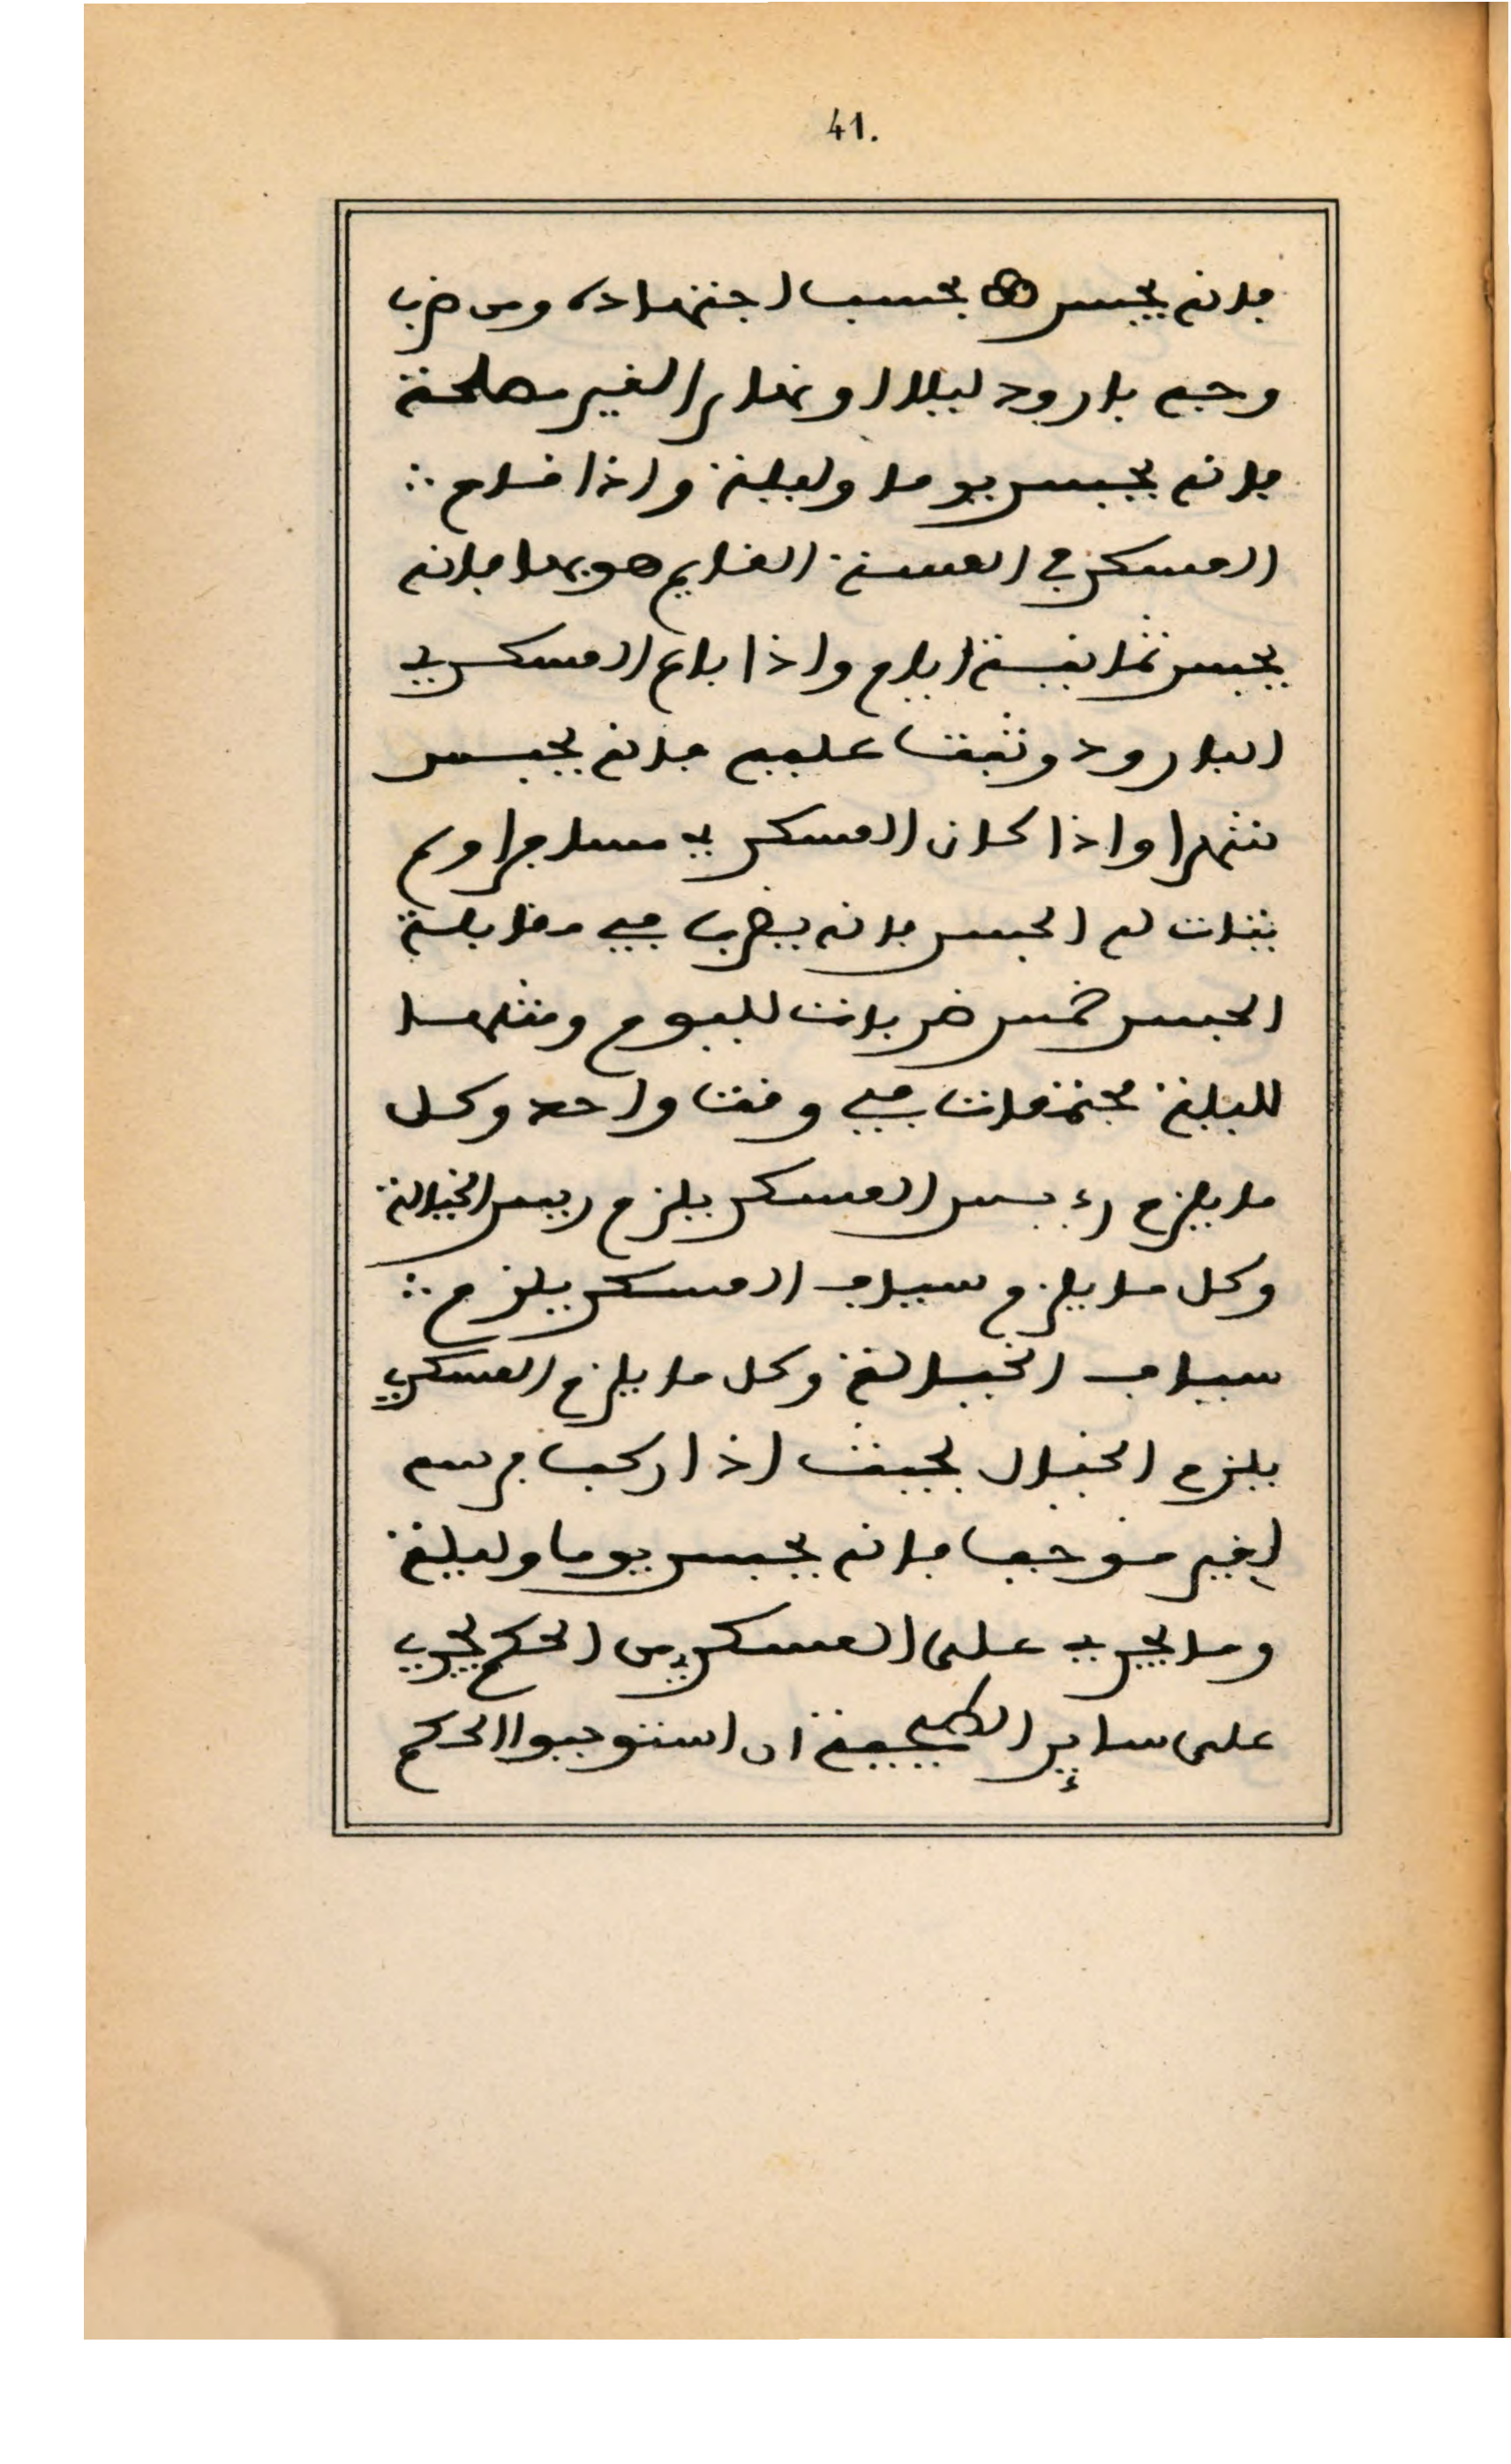 41.
فانه يحبس بحسب اجتهاده ومن ضرب
وجه بارود ليلا او نهارا لغير مصلحة
فانه يحبس يوما وليلة واذا نام ∴
العسكر في العسة القايم هو بها فانه
يحبس ثمانية ايام واذا باع العسكري
البارود وثبت عليه فانه يحبس
شهرا واذا كان العسكري مسافرا ولم
يتات له الحبس فانه يضرب في مقابلة
الحبس خمس ضربات لليوم ومثلها
لليلة مجتمعات في وقت واحد وكل
ما يلزم رءيس العسكر يلزم رييس الخيالة
وكل ما يلزم سياف العسكر يلزم ∴
سياف الخيالة وكل ما يلزم العسكري
يلزم الخيال بحيث اذا ركب فرسه
لغير موجب فانه يحبس يوما وليلة
وما يجري على العسكري من الحكم يجري
على ساير الطبجية ان استوجبوا الحكم